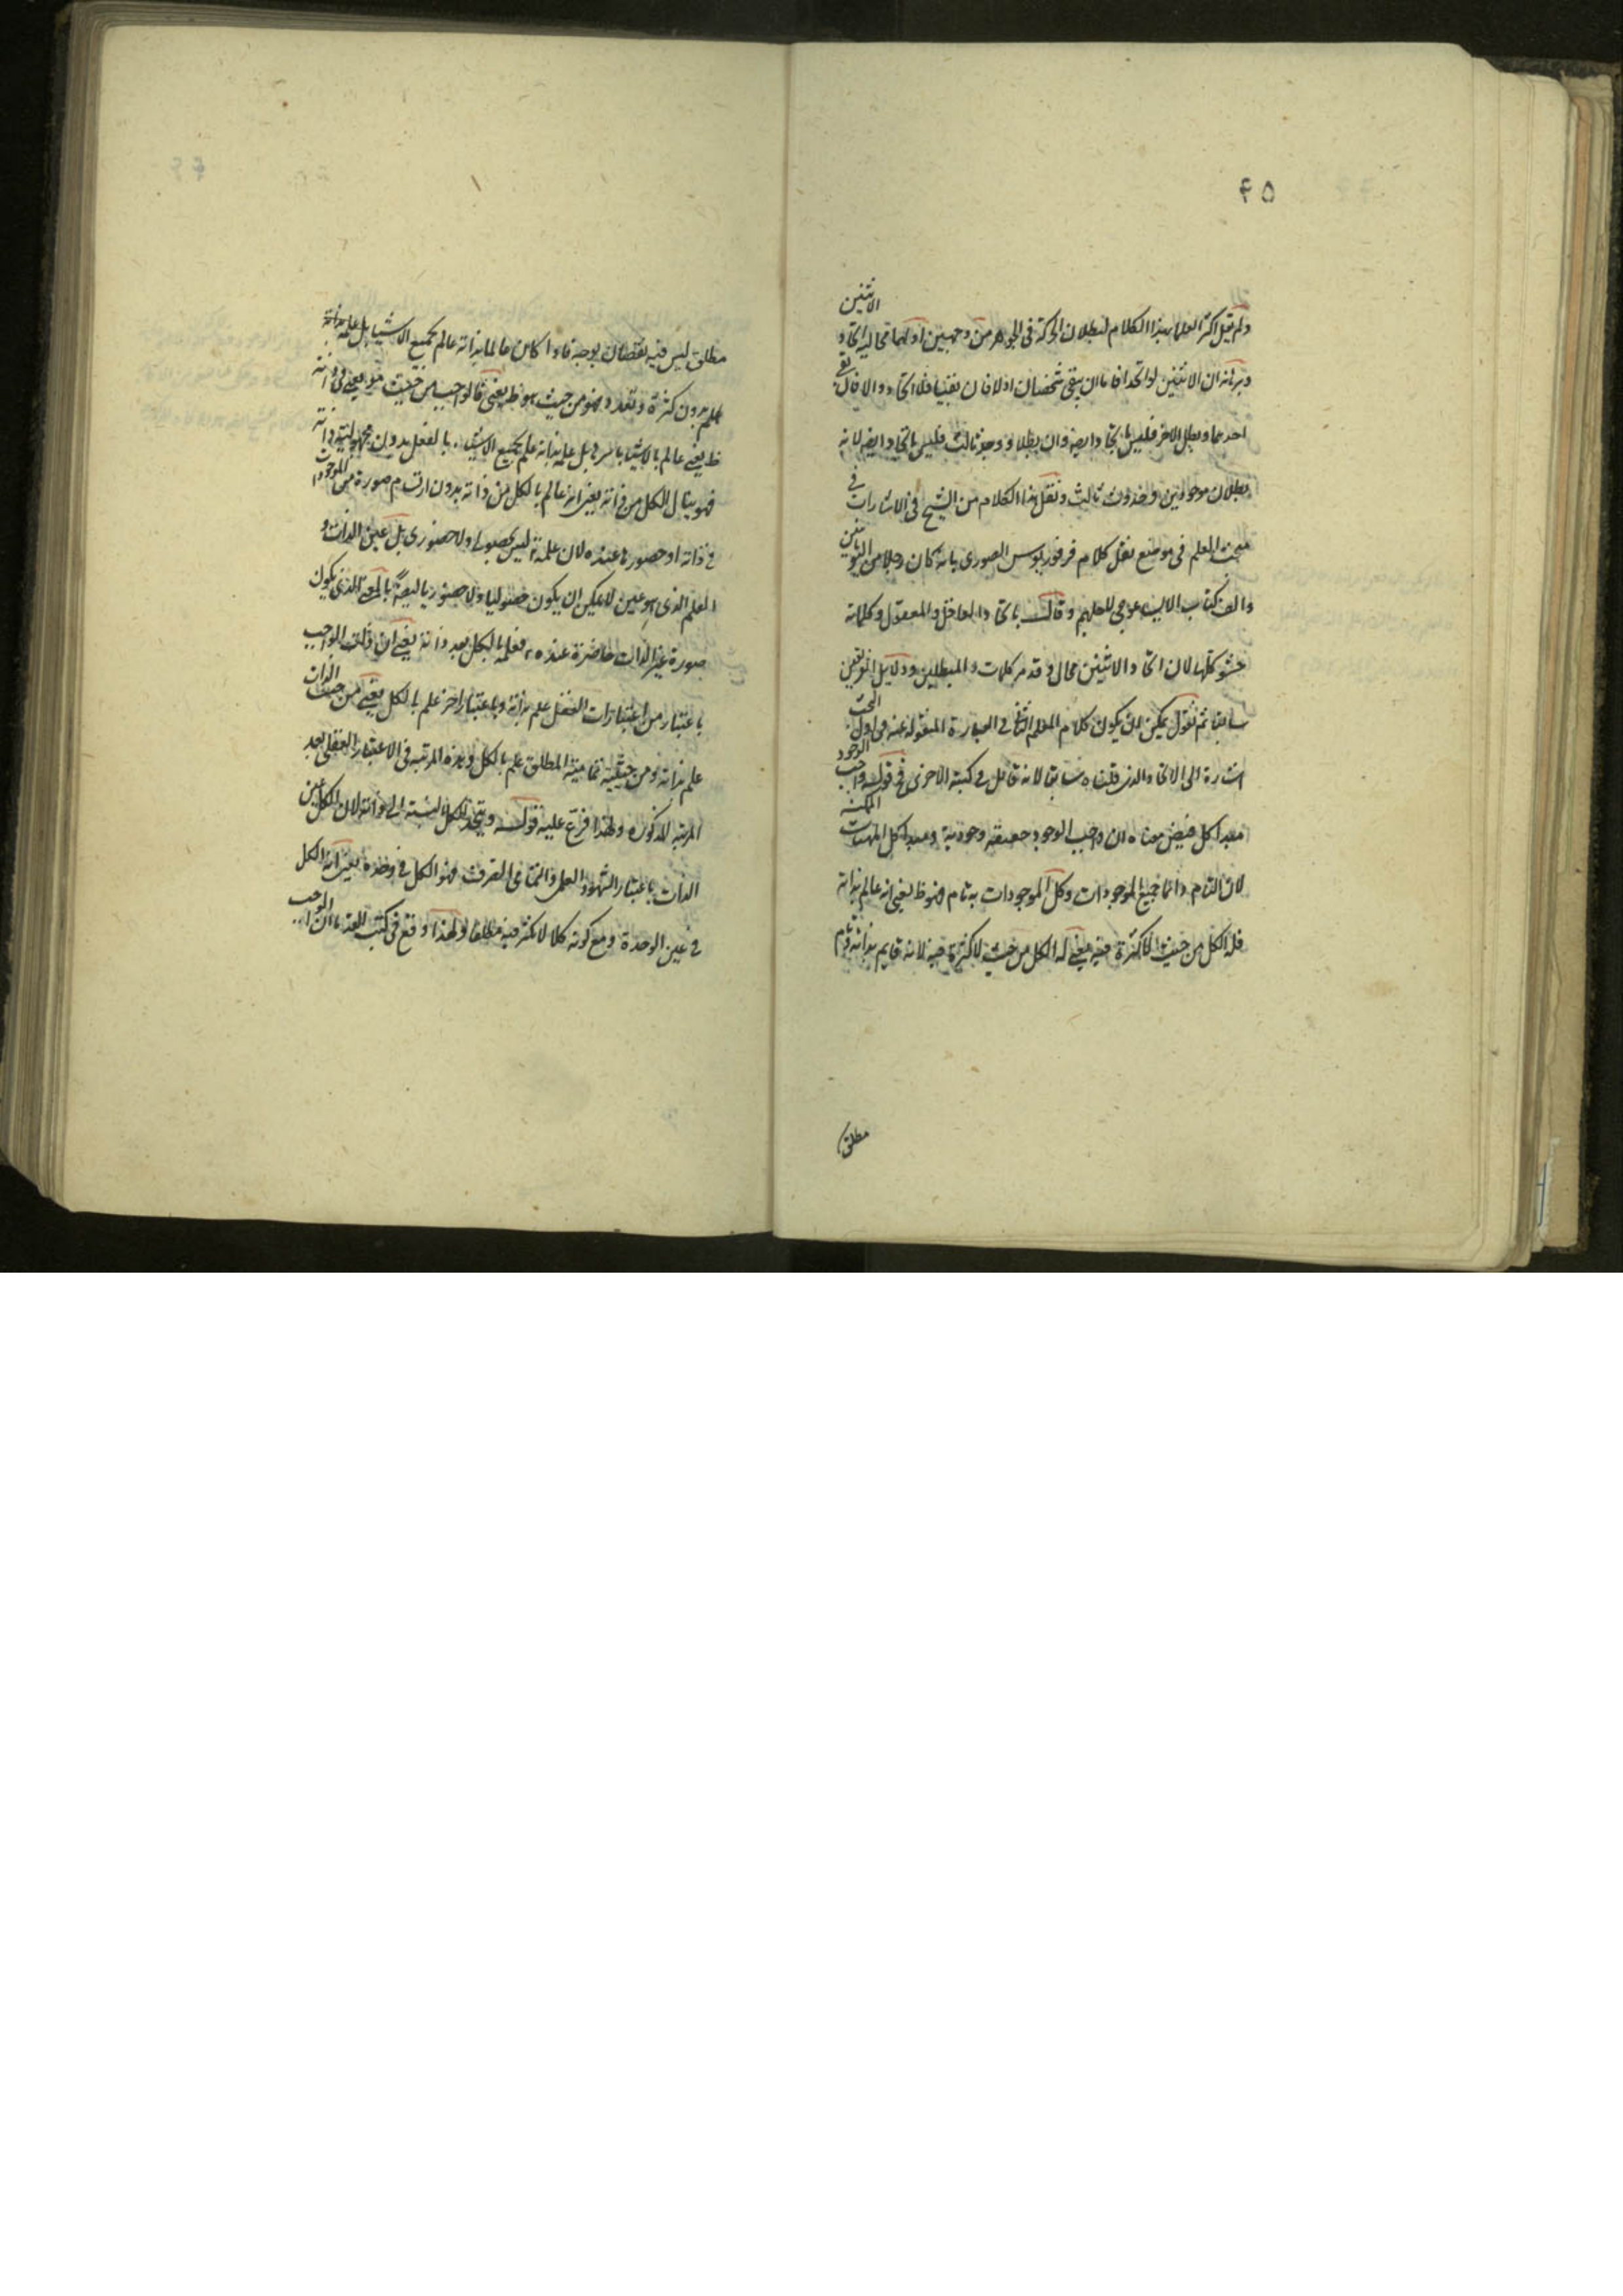 ۴۵
ولم يقبل اكثر العلماء بهذا الكلام لبطلان الحركة فى الجوهر من وجهين اولهما محالية اتحاد الاثنين
وبرهانه ان الاثنين لو اتحدا فاما ان يبقى شخصان اولا فان بقيا فلا اتحاد والا فان بقى
احدهما وبطل الاخر فليس باتحاد ايضا وان بطلا ووجد ثالث فليس باتحاد ايضا لانه
بطلان موجودين وحدوث ثالث ونقل هذا الكلام من الشيخ فى الاشارات فى
مبحث العلم فى موضع نقل كلام فرفوريوس الصورى بانه كان رجلا من اليونانيين
والف كتاب الايساغوجى للعلهم وقال باتحاد العاقل والمعقول وكلماته
حشو كلها لان اتحاد الاثنين محال وقد مر كلمات المبطلين ودلايل الفريقين
سابقا ثم نقول يمكن ان يكون كلام المعلم الثانى فى العبارة المنقولة عنه فى اول المبحث
اشارة الى الاتحاد الذى قلناه سابقا لانه قائل فى كتبه الاخرى فى قوله واجب الوجود
مبدا كل فيض معناه ان واجب الوجود حقيقة وجودية ومبدا كل المهيات الممكنة
لان التام دائما جميع الموجودات وكل الموجودات به تام فهو ظ يعنى انه عالم بذاته
فله الكل من حيث لا كثرة فيه يعنى له الكل من حيث لا كثرة فيه لانه قايم بذاته وتام
مطلق
مطلق ليس فيه نقصان بوجه فاذا كان عالما بذاته عالم بجميع الاشيا بل علمه بذاته
علم بدون كثرة وتعدد فهو من حيث هو ظ يعنى فالواجب من حيث هو يعنى فى ذاته
ظ يعنى عالم بالاشيا باسرها بل علمه بذاته علم بجميع الاشياء بالفعل بدون مجهولية ذاته
فهو ينال الكل من ذاته يعنى انه عالم بالكل من ذاته بدون ارتسام صورة من الموجودات
فى ذاته او حضورها عنده لان علمه ليس بحصولى ولا حضورى بل عين الذات و
العلم الذى هو عين لا يمكن ان يكون حصوليا ولا حضوريا ايضا بالمعنى الذى يكون
صورة غير الذات حاضرة عنده فعلمه بالكل بعد ذاته يعنى ان ذات الواجب
باعتبار من اعتبارات العقل علم بذاته وباعتبار اخر علم بالكل يعنى من حيث الذات
علم بذاته ومن حيثية تمامية المطلق علم بالكل وهذه المرتبة فى الاعتبار العقلى بعد
المرتبة المذكوره ولهذا فرع عليه قوله ويتحد الكل بالنسبة الى ذاته لان الكل عين
الذات باعتبار الشهود العلمى والتمامى الصرف فهو الكل فى وحده يعنى انه الكل
فى عين الوحدة ومع كونه كلا لا تكثر فيه مطلقا ولهذا وقع فى كتب القدما ان الواجب